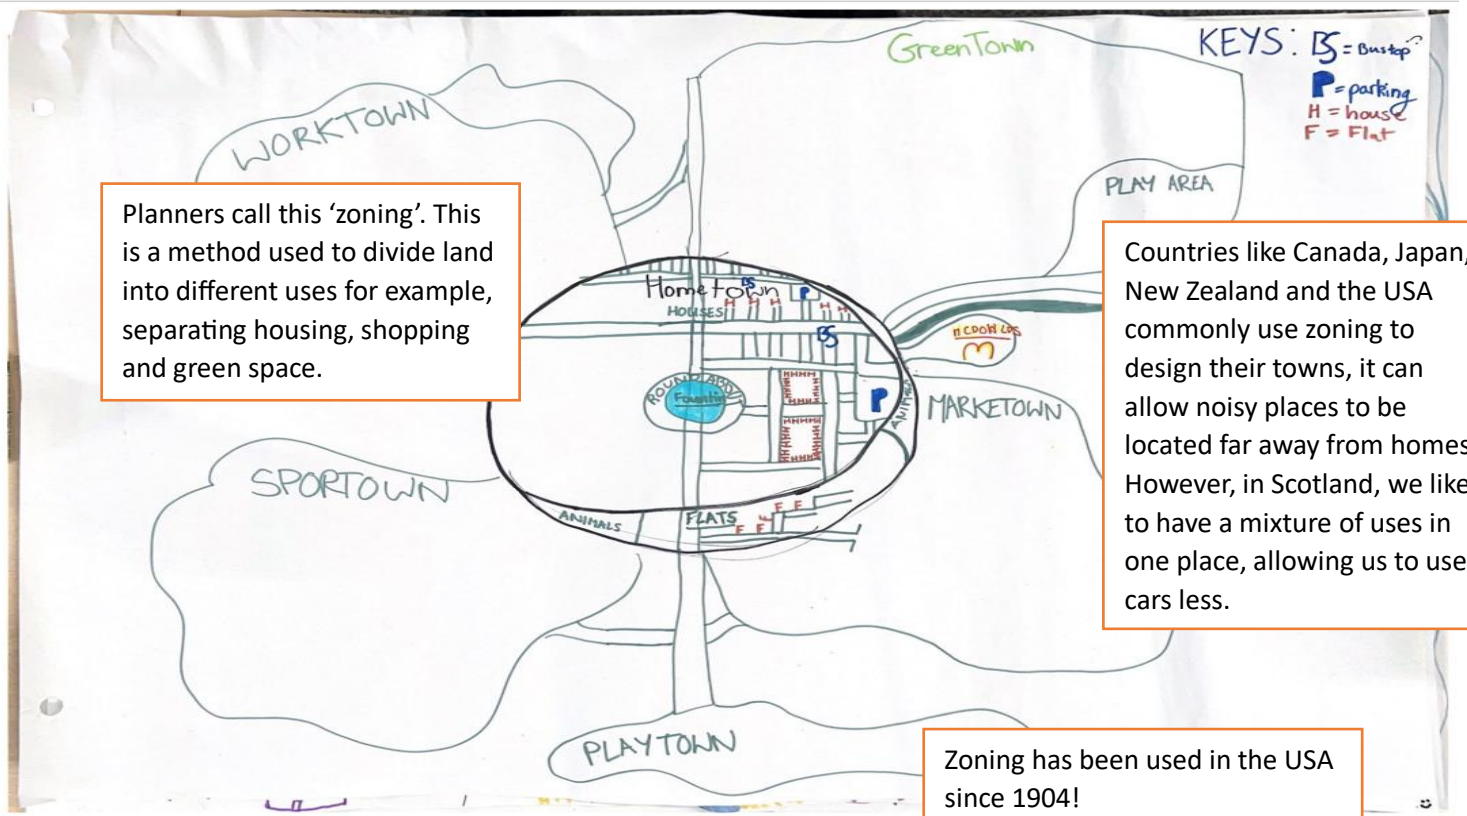 GreenTown
KEYS: BS = Bustop
P = parking
H = house
F = Flat
WORKTOWN
PLAY AREA
Planners call this ‘zoning’. This
is a method used to divide land
into different uses for example,
separating housing, shopping
and green space.
Countries like Canada, Japan,
New Zealand and the USA
commonly use zoning to
design their towns, it can
allow noisy places to be
located far away from homes
However, in Scotland, we like
to have a mixture of uses in
one place, allowing us to use
cars less.
Hometown
BS
P
HOUSES
H H H H H
BS
MCDONLDS
M
ROUNDABOU
Fountin
HHHH
HHHH
P
ANIMALS
MARKETOWN
SPORTOWN
ANIMALS
FLATS
F F F F F
PLAYTOWN
Zoning has been used in the USA
since 1904!